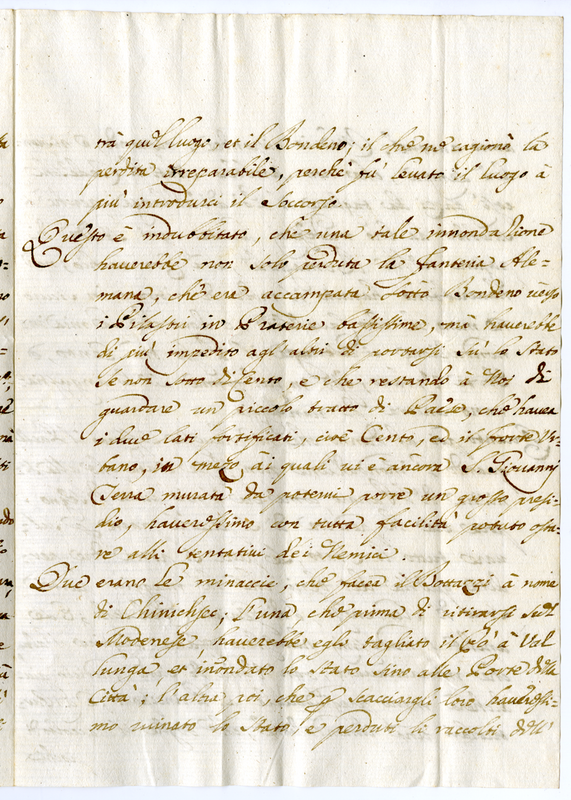 trà quel luogo, et il Bondeno; il che ne cagionò la
perdita irreparabile, perche fù levato il luogo à
più introdurci il Soccorso.
Questo è indubbitato, che una tale innondazione
haverebbe non solo perduta la fanteria Ale-
mana, che era accampata sotto Bondeno verso
i Pilastri in Praterie bassissime, mà haverebbe
di più impedito agl'altri di portarsi sù lo Stato
se non sotto di Cento, e che restando à Noi di
guardare un piccolo tratto di Paese, che havea
i due lati fortificati, cioè Cento, ed il forte Ur-
bano, in mezo ài quali vi è ancora S. Giovanni
Terra murata da potervi porre un grosso presi-
dio, haveressimo con tutta facilità potuto osta-
re alli tentativi dei Nemici.
Due erano le minaccie, che facea il Bottazzi à nome
di ; l'una, che prima di ritirarsi sul
Modenese, haverebbe egli tagliato il Pò à Val
lunga, et inondato lo Stato sino alle Porte della
Città; l'altra poi, che p scacciargli loro haveressi-
mo ruinato lo Stato, e perduti li raccolti dell'